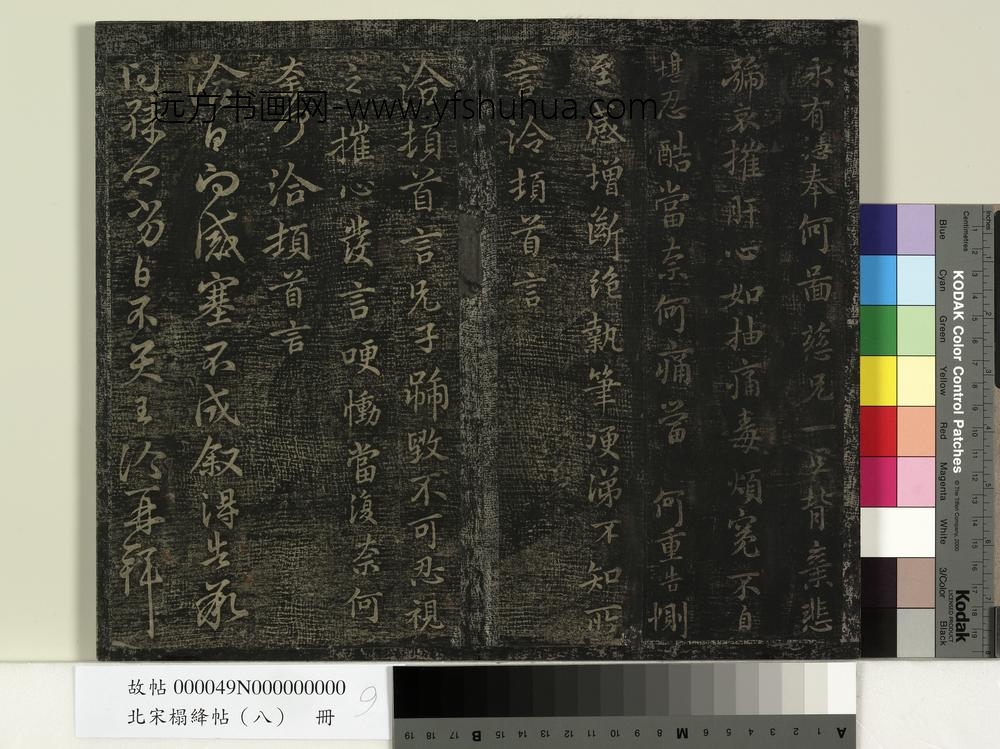 永有憑奉何啚慈兄一旦背棄悲
號哀摧肝心如抽痛毒煩冤不自
堪忍酷當奈何痛當何重告惻
至感增斷絶執筆便涕不知所
言洽頓首言
洽頓首言兄子號毀不可忍視
之摧心發言哽慟當復奈何
奈何洽頓首言
洽白向感塞不成叙得告承
問孫分勞白不具王洽再拜
远方书画网-www.yfshuhua.com
故帖 000049N000000000
北宋榻絳帖（八） 冊
9
Blue
Cyan
Green
Yellow
Red
Magenta
White
3/Color
Black
KODAK Color Control Patches
© The Tiffen Company, 2000
Kodak
LICENSED PRODUCT
Inches
Centimetres
A
M
B